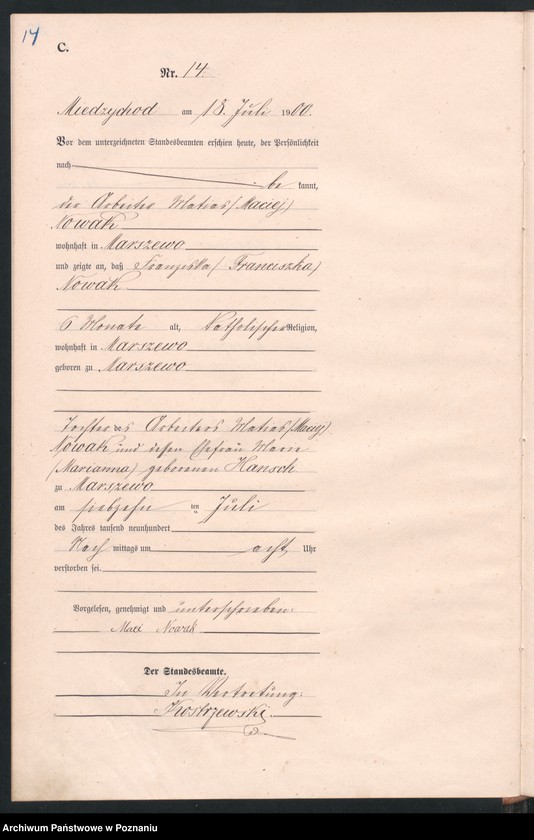 14
C.
Nr. 14.
Miedzychod am 18. Juli 1900.
Vor dem unterzeichneten Standesbeamten erschien heute, der Persönlichkeit
nach
be kannt,
der Arbeiter Matias (Maciej)
Nowak
wohnhaft in Marszewo
und zeigte an, daß Franziska (Franciszka)
Nowak
6 Monate alt, Katholischer Religion,
wohnhaft in Marszewo
geboren zu Marszewo
Tochter des Arbeiters Matias (Maciej)
Nowak und dessen Ehefrau Marie
(Marianna) geborenen Hansch
zu Marszewo
am siebzehn ten Juli
des Jahres tausend neunhundert
Nach mittags um acht Uhr
verstorben sei.
Vorgelesen, genehmigt und unterschrieben:
Maci Nowak
Der Standesbeamte.
In Vertretung:
Kostrzewski
Archiwum Państwowe w Poznaniu